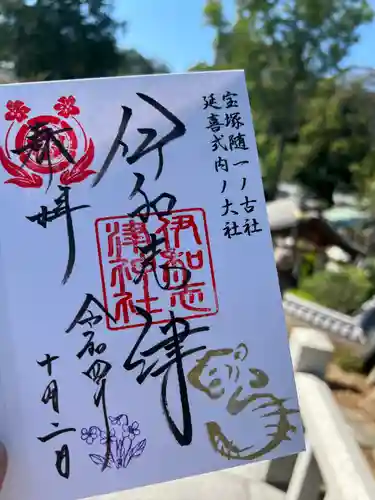 宝塚随一ノ古社
延喜式内ノ大社
伊和志津
伊和志
津神社
奉拝
令和四年
十月二日